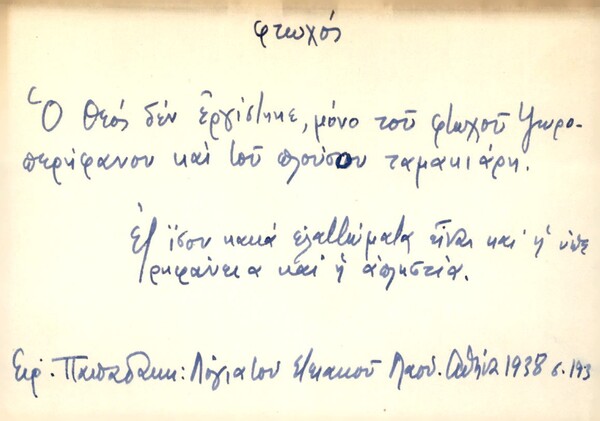 φτωχός
Ὁ Θεός δέν ἐργίστηκε, μόνο τοῦ φτωχοῦ ψωρο-
περήφανου καί τοῦ πλούσου ταμακιάρη.
Ἐξ ἴσου κακά ἐλαττώματα εἶναι καί ἡ ὑπε
ρηφάνεια καί ἡ ἀπληστία.
Εἰρ. Παπαδάκη: Λόγια τοῦ Στειακοῦ Λαοῦ. Ἀθήνα 1938 σ. 193